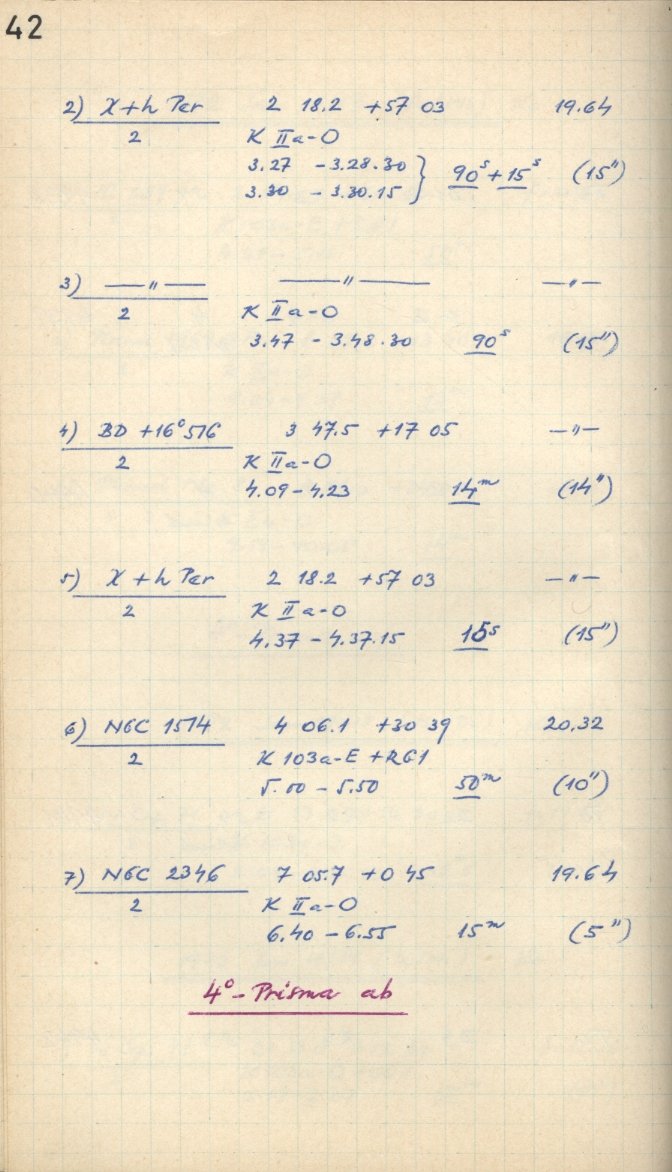 42
2) χ+h Per 2 18.2 +57 03 19.64
2 K IIa-O
3.27 - 3.28.30 } 90s + 15s (15")
3.30 - 3.30.15
3) —"— —"— —"—
2 K IIa-O
3.47 - 3.48.30 90s (15")
4) BD +16°516 3 47.5 +17 05 —"—
2 K IIa-O
4.09 - 4.23 14m (14")
5) χ+h Per 2 18.2 +57 03 —"—
2 K IIa-O
4.37 - 4.37.15 15s (15")
6) NGC 1514 4 06.1 +30 39 20.32
2 K 103a-E + RG1
5.00 - 5.50 50m (10")
7) NGC 2346 7 05.7 +0 45 19.64
2 K IIa-O
6.40 - 6.55 15m (5")
4°-Prisma ab